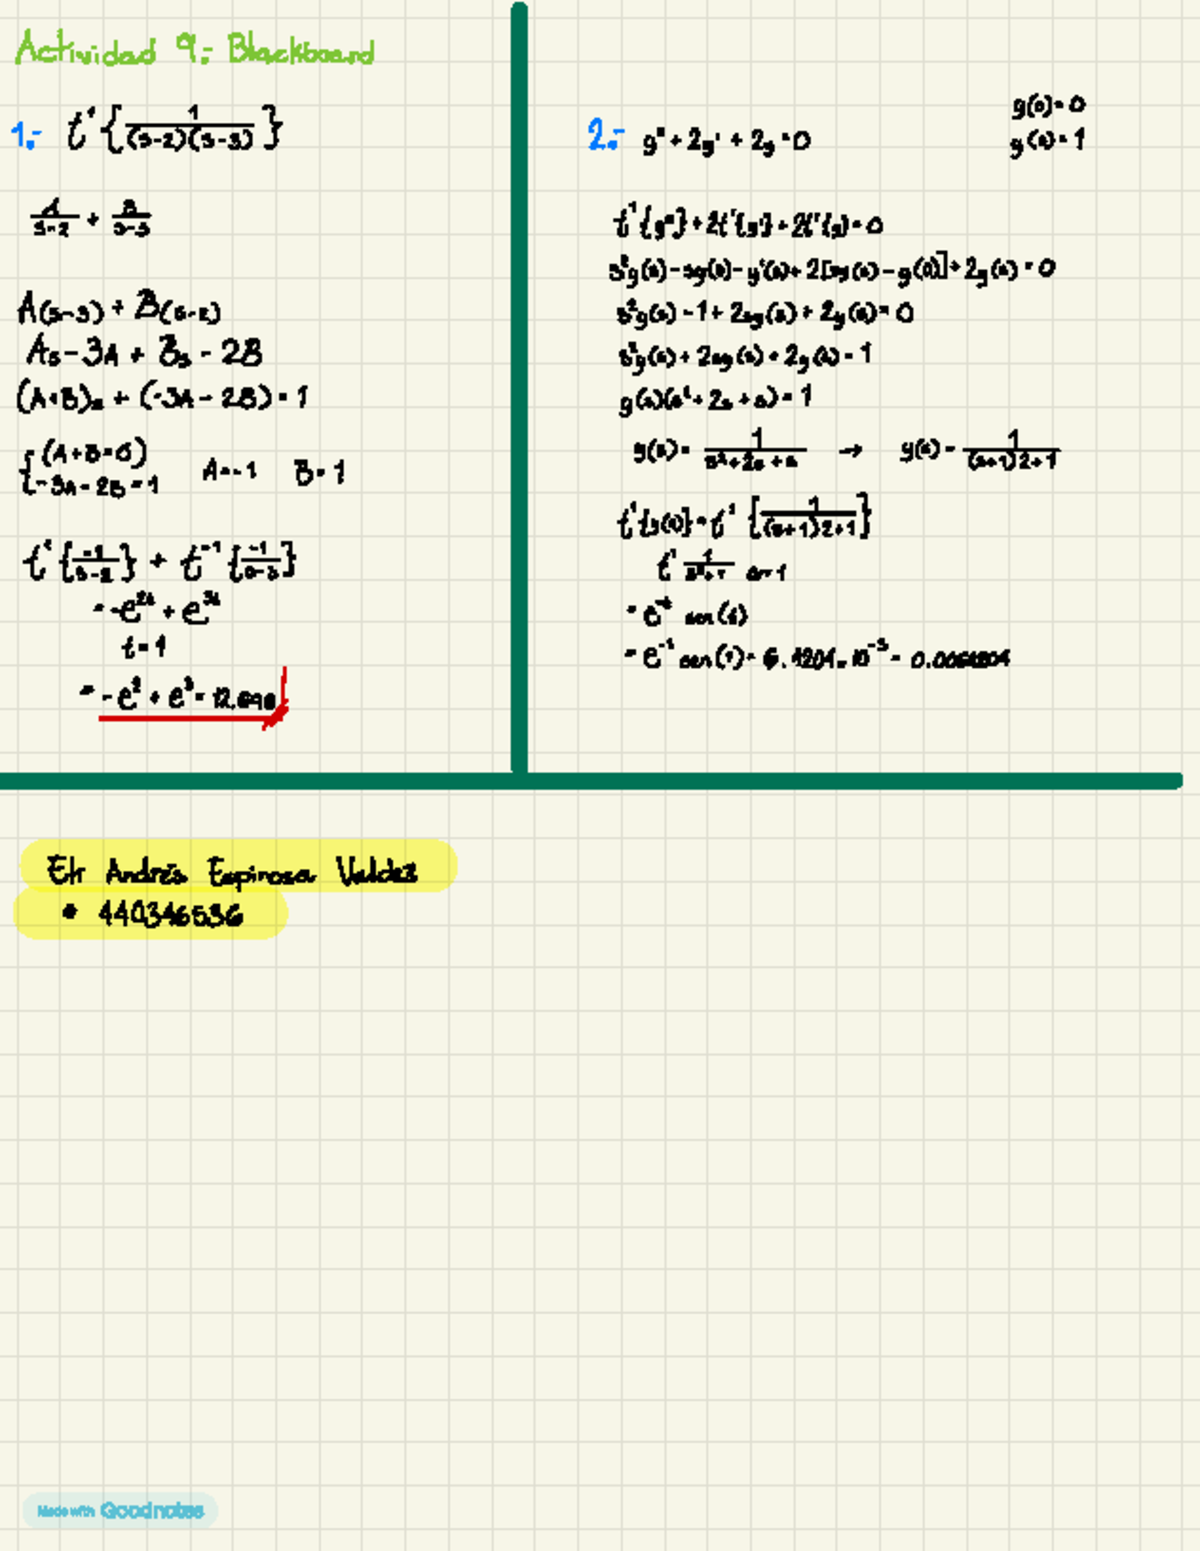 Actividad 9.- Blackboard
1.- t⁻¹{1/((s-2)(s-3))}
A/(s-2) + B/(s-3)
A(s-3) + B(s-2)
As - 3A + Bs - 2B
(A+B)s + (-3A - 2B) = 1
{(A+B=0)
-3A - 2B = 1
A=-1 B=1
t⁻¹{-1/(s-2)} + t⁻¹{-1/(s-3)}
= -e^2t + e^3t
t=1
= -e² + e³ = 12.696
2.- y" + 2y' + 2y = 0
y(0)=0
y(0)=1
t⁻¹{y"} + 2t⁻¹{y'} + 2t⁻¹{y} = 0
s²y(s) - sy(0) - y'(0) + 2[sy(s) - y(0)] + 2y(s) = 0
s²y(s) - 1 + 2sy(s) + 2y(s) = 0
s²y(s) + 2sy(s) + 2y(s) = 1
y(s)(s² + 2s + 2) = 1
y(s) = 1/(s²+2s+2) → y(s) = 1/((s+1)2+1)
t⁻¹{y(s)} = t⁻¹{1/((s+1)2+1)}
= e^-t sen(t)
= e⁻¹ sen(1) = 6.4204 × 10⁻³ = 0.0064204
Etr Andrés Espinosa Valdez
• 440346536
Made with Goodnotes